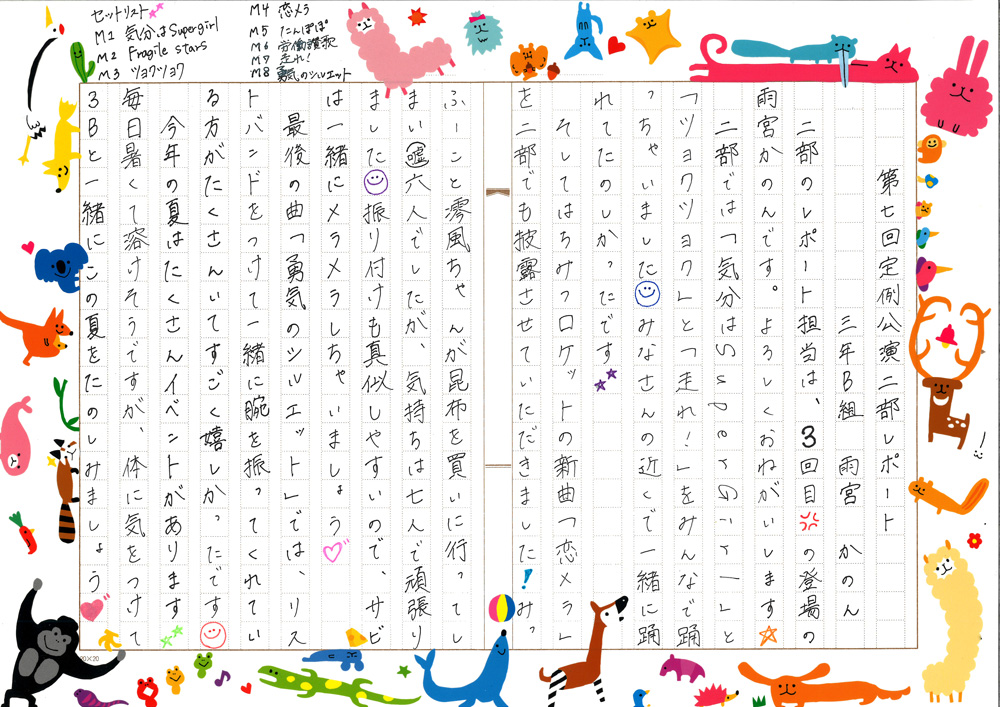 セットリスト
M1 気分はSupergirl
M2 Fragile stars
M3 ツヨクツヨク
M4 恋メラ
M5 たんぽぽ
M6 労働讃歌
M7 走れ!
M8 勇気のシルエット
第七回定例公演二部レポート
三年B組 雨宮 かのん
二部のレポート担当は、3回目の登場の
雨宮かのんです。よろしくおねがいします
二部では「気分はSupergirl」と
「ツヨクツヨク」と「走れ!」をみんなで踊
っちゃいました みなさんの近くで一緒に踊
れてたのしかったです
そしてはちみつロケットの新曲「恋メラ」
を二部でも披露させていただきました!みっ
ふーこと澪風ちゃんが昆布を買いに行ってし
まい(嘘)六人でしたが、気持ちは七人で頑張り
ました 振り付けも真似しやすいので、サビ
は一緒にメラメラしちゃいましょう
最後の曲「勇気のシルエット」では、リス
トバンドをつけて一緒に腕を振ってくれてい
る方がたくさんいてすごく嬉しかったです
今年の夏はたくさんイベントがあります
毎日暑くて溶けそうですが、体に気をつけて
3Bと一緒にこの夏をたのしみましょう
20×20